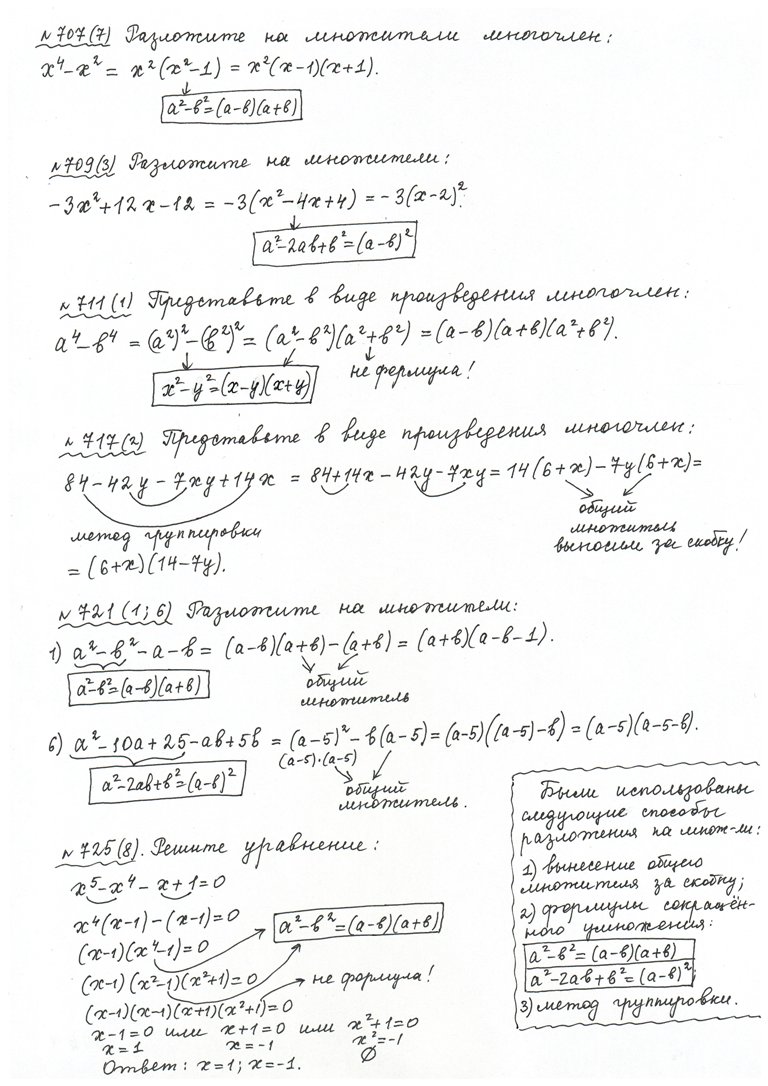 №707(7) Разложите на множители многочлен:
x⁴-x² = x²(x²-1) = x²(x-1)(x+1).
a²-b²=(a-b)(a+b)
№709(3) Разложите на множители:
-3x²+12x-12 = -3(x²-4x+4) = -3(x-2)².
a²-2ab+b²=(a-b)²
№711(1) Представьте в виде произведения многочлен:
a⁴-b⁴ = (a²)²-(b²)² = (a²-b²)(a²+b²) = (a-b)(a+b)(a²+b²).
x²-y²=(x-y)(x+y)
не формула!
№717(2) Представьте в виде произведения многочлен:
84-42y-7xy+14x = 84+14x-42y-7xy = 14(6+x)-7y(6+x)=
общий
множитель
выносим за скобку!
метод группировки
= (6+x)(14-7y).
№721(1;6) Разложите на множители:
1) a²-b²-a-b = (a-b)(a+b)-(a+b) = (a+b)(a-b-1).
a²-b²=(a-b)(a+b)
общий
множитель
6) a²-10a+25-ab+5b = (a-5)²-b(a-5)=(a-5)((a-5)-b)=(a-5)(a-5-b).
(a-5)·(a-5)
a²-2ab+b²=(a-b)²
общий
множитель.
№725(8). Решите уравнение:
x⁵-x⁴-x+1=0
x⁴(x-1)-(x-1)=0
a²-b²=(a-b)(a+b)
(x-1)(x⁴-1)=0
(x-1)(x²-1)(x²+1)=0
не формула!
(x-1)(x-1)(x+1)(x²+1)=0
x-1=0 или x+1=0 или x²+1=0
x=1 x=-1 x²=-1
∅
Ответ: x=1; x=-1.
Были использованы
следующие способы
разложения на множ-ли:
1) вынесение общего
множителя за скобку;
2) формулы сокращён-
ного умножения:
a²-b²=(a-b)(a+b)
a²-2ab+b²=(a-b)²;
3) метод группировки.